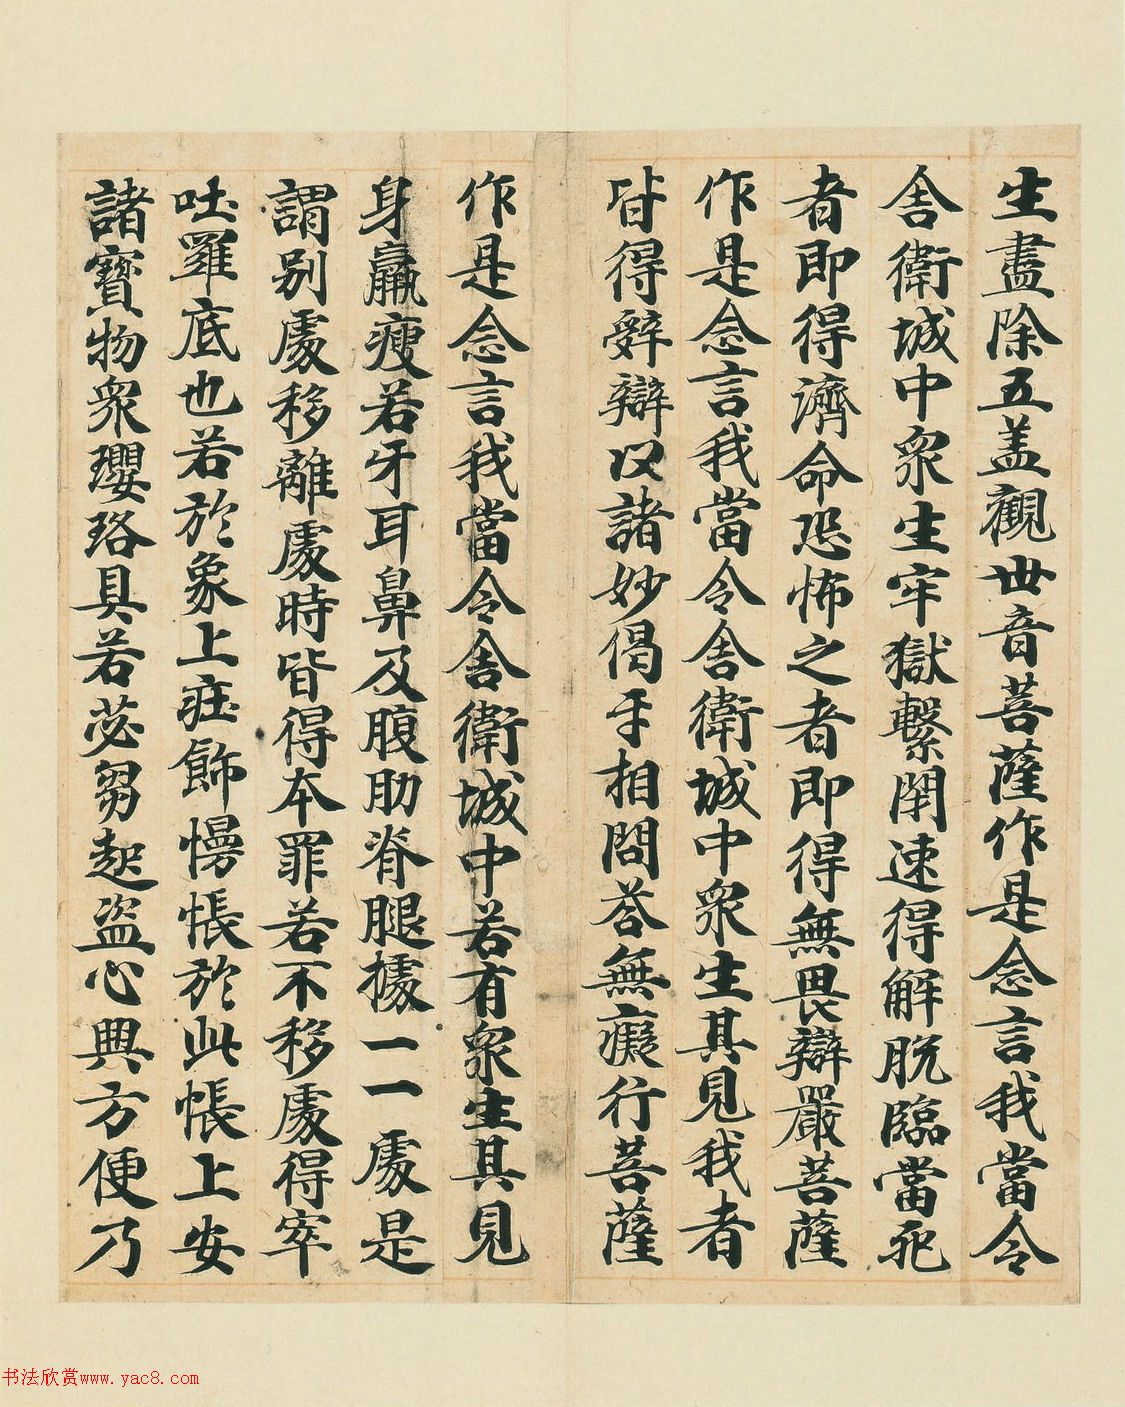 生盡除五盖觀世音菩薩作是念言我當令
舎衛城中衆生牢獄繫閇速得解脱臨當死
者即得濟命恐怖之者即得無畏辯嚴菩薩
作是念言我當令舎衛城中衆生其見我者
皆得辝辯以諸妙偈乎相問荅無癡行菩薩
作是念言我當令舎衛城中若有衆生其見
身羸瘦若牙耳鼻及腹肋脊腿據一一處是
謂别處移離處時皆得本罪若不移處得窣
吐羅底也若於象上莊飾幔帳於此帳上安
諸寶物衆瓔珞具若苾芻起盗心興方便乃
书法欣赏www.yac8.com